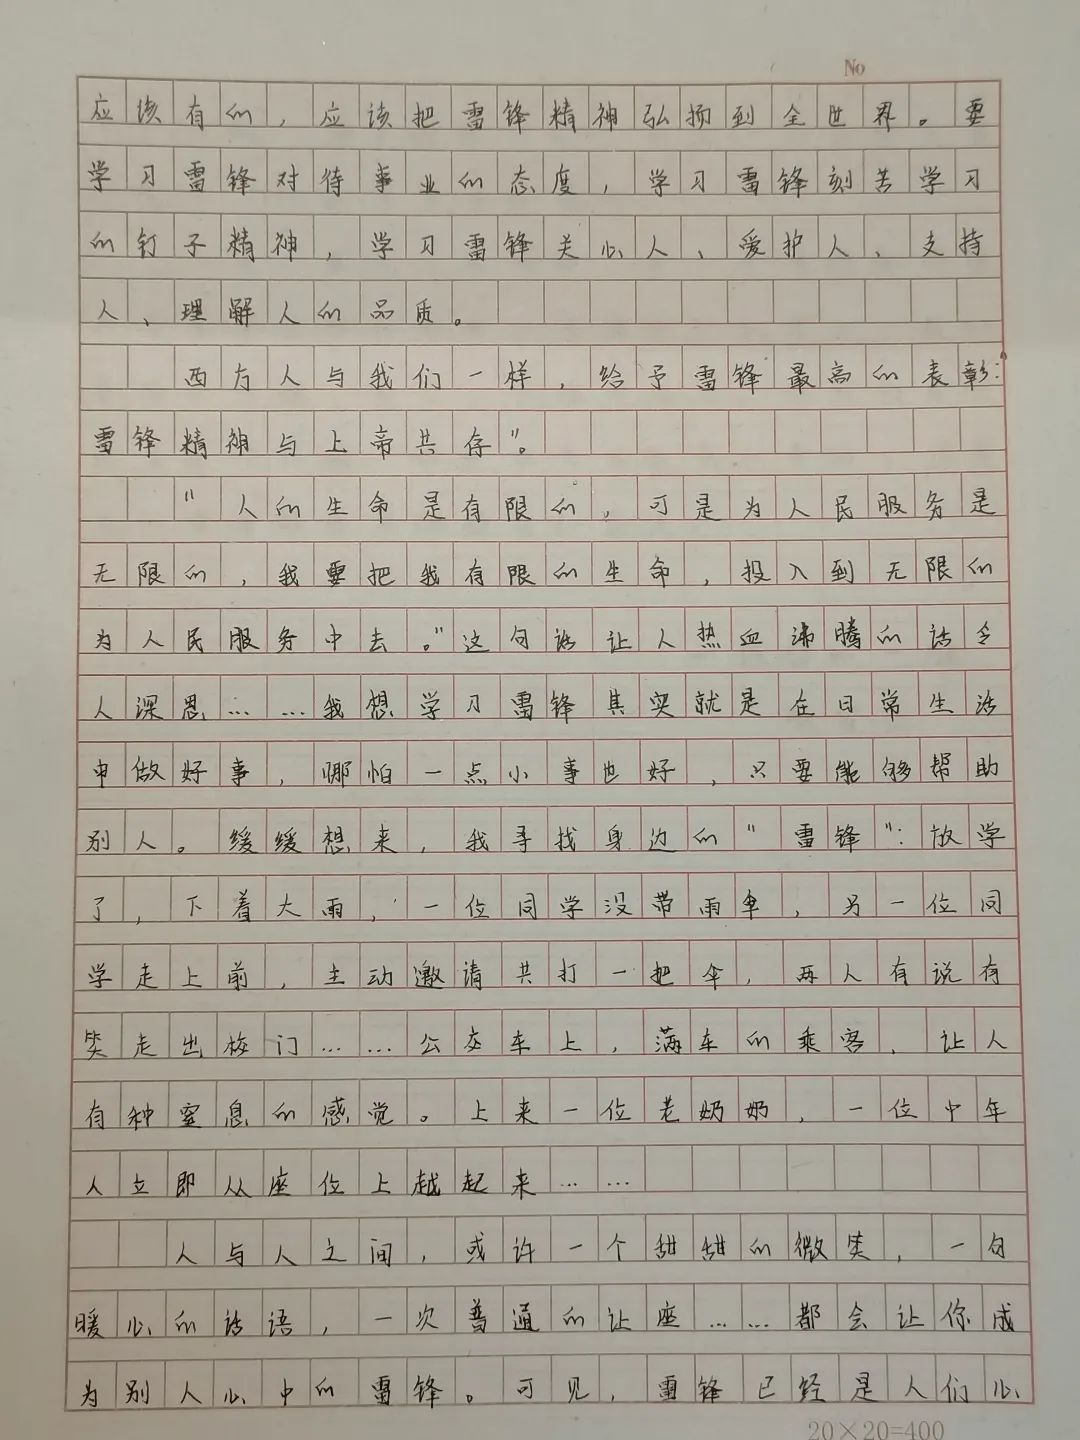 No
应该有的，应该把雷锋精神弘扬到全世界。要
学习雷锋对待事业的态度，学习雷锋刻苦学习
的钉子精神，学习雷锋关心人、爱护人、支持
人、理解人的品质。
西方人与我们一样，给予雷锋最高的表彰：
雷锋精神与上帝共存”。
“人的生命是有限的，可是为人民服务是
无限的，我要把我有限的生命，投入到无限的
为人民服务中去。”这句话让人热血沸腾的话令
人深思……我想学习雷锋其实就是在日常生活
中做好事，哪怕一点小事也好，只要能够帮助
别人。缓缓想来，我寻找身边的“雷锋”：放学
了，下着大雨，一位同学没带雨伞，另一位同
学走上前，主动邀请共打一把伞，两人有说有
笑走出校门……公交车上，满车的乘客，让人
有种窒息的感觉。上来一位老奶奶，一位中年
人立即从座位上越起来……
人与人之间，或许一个甜甜的微笑，一句
暖心的话语，一次普通的让座……都会让你成
为别人心中的雷锋。可见，雷锋已经是人们心
20×20=400